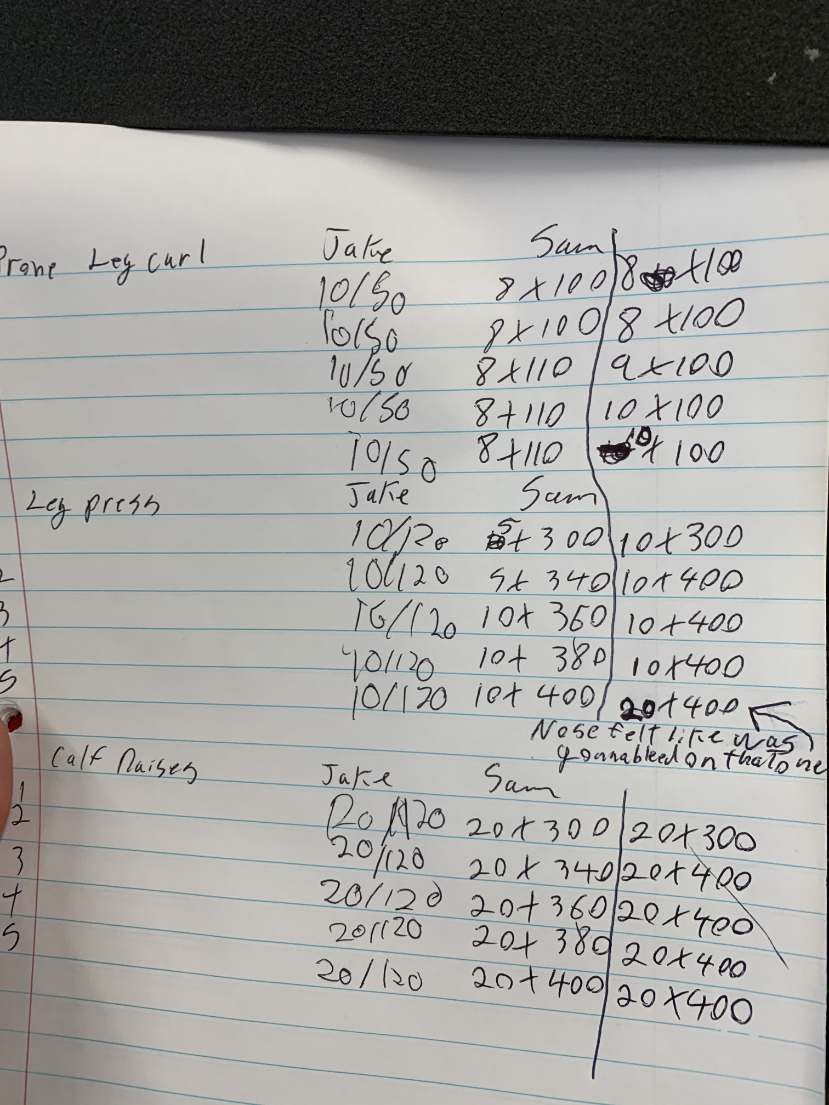 Prone Leg curl Jake Sam
10/50 8 x 100 8 x 100
10/50 8 x 100 8 x 100
10/50 8 x 110 9 x 100
10/50 8 + 110 10 x 100
10/50 8 + 110 10 x 100
Leg press Jake Sam
10/120 5 + 300 10 + 300
2 10/120 5x 340 10 + 400
3 10/120 10 + 360 10 + 400
4 10/120 10 + 380 10 x 400
5 10/120 10 + 400 20 + 400
Nose felt like was
gonna bleed on that one
Calf Raises Jake Sam
1 20/120 20 x 300 20 x 300
2 20/120 20 x 340 20 + 400
3 20/120 20 + 360 20 x 400
4 20/120 20 + 380 20 x 400
5 20/120 20 + 400 20 x 400